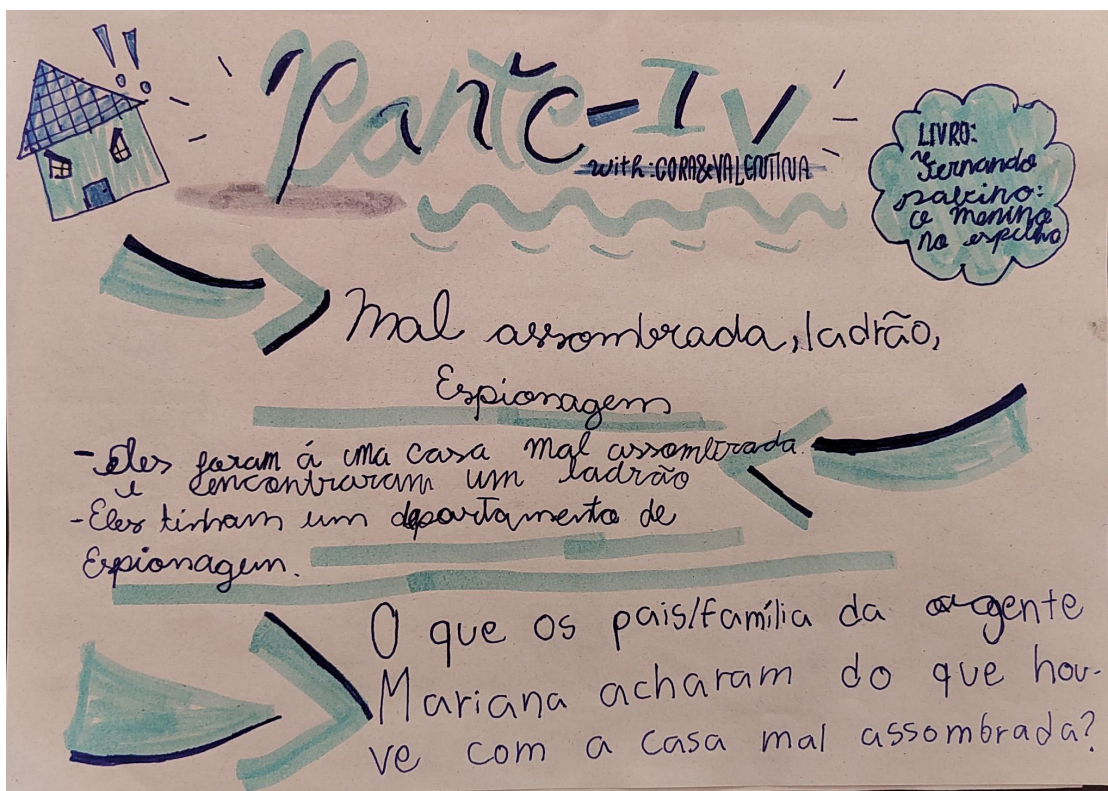 Parte-IV
with: CORA&VALENTINA
LIVRO:
Fernando
sabino:
o menino
no espelho
Mal assombrada, ladrão,
Espionagem
-Eles foram á uma casa mal assombrada.
e encontraram um ladrão
-Eles tinham um departamento de
Espionagem.
O que os pais/família da agente
Mariana acharam do que hou-
ve com a casa mal assombrada?